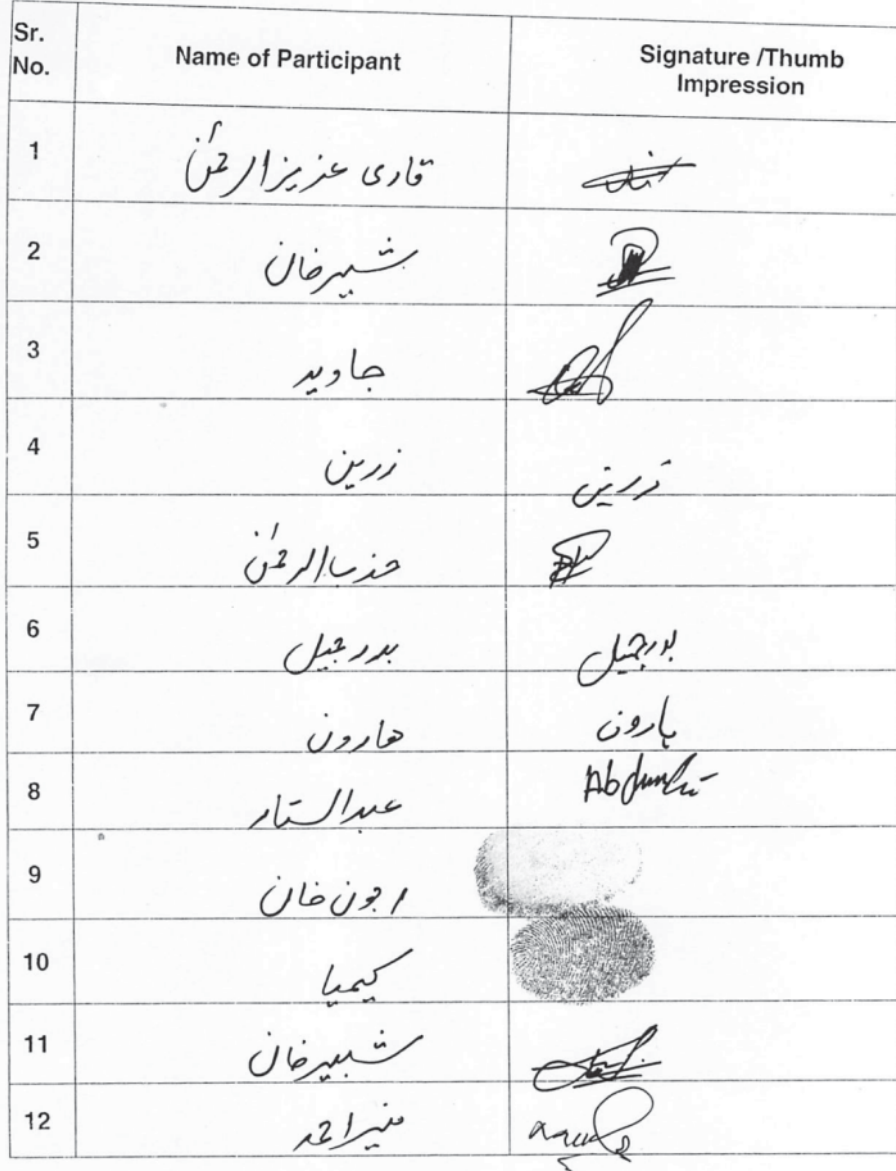 Sr. No. Name of Participant Signature /Thumb Impression
1 قاری عزیزالرحمٰن
2 شبیرخان
3 جاوید
4 زرین زرین
5 الرحمٰن
6 بدر جمیل بدرجمیل
7 ھارون ہارون
8 عبدالستار
9 خان
10 کیمیا
11 شبیرخان
12 منیراحمد